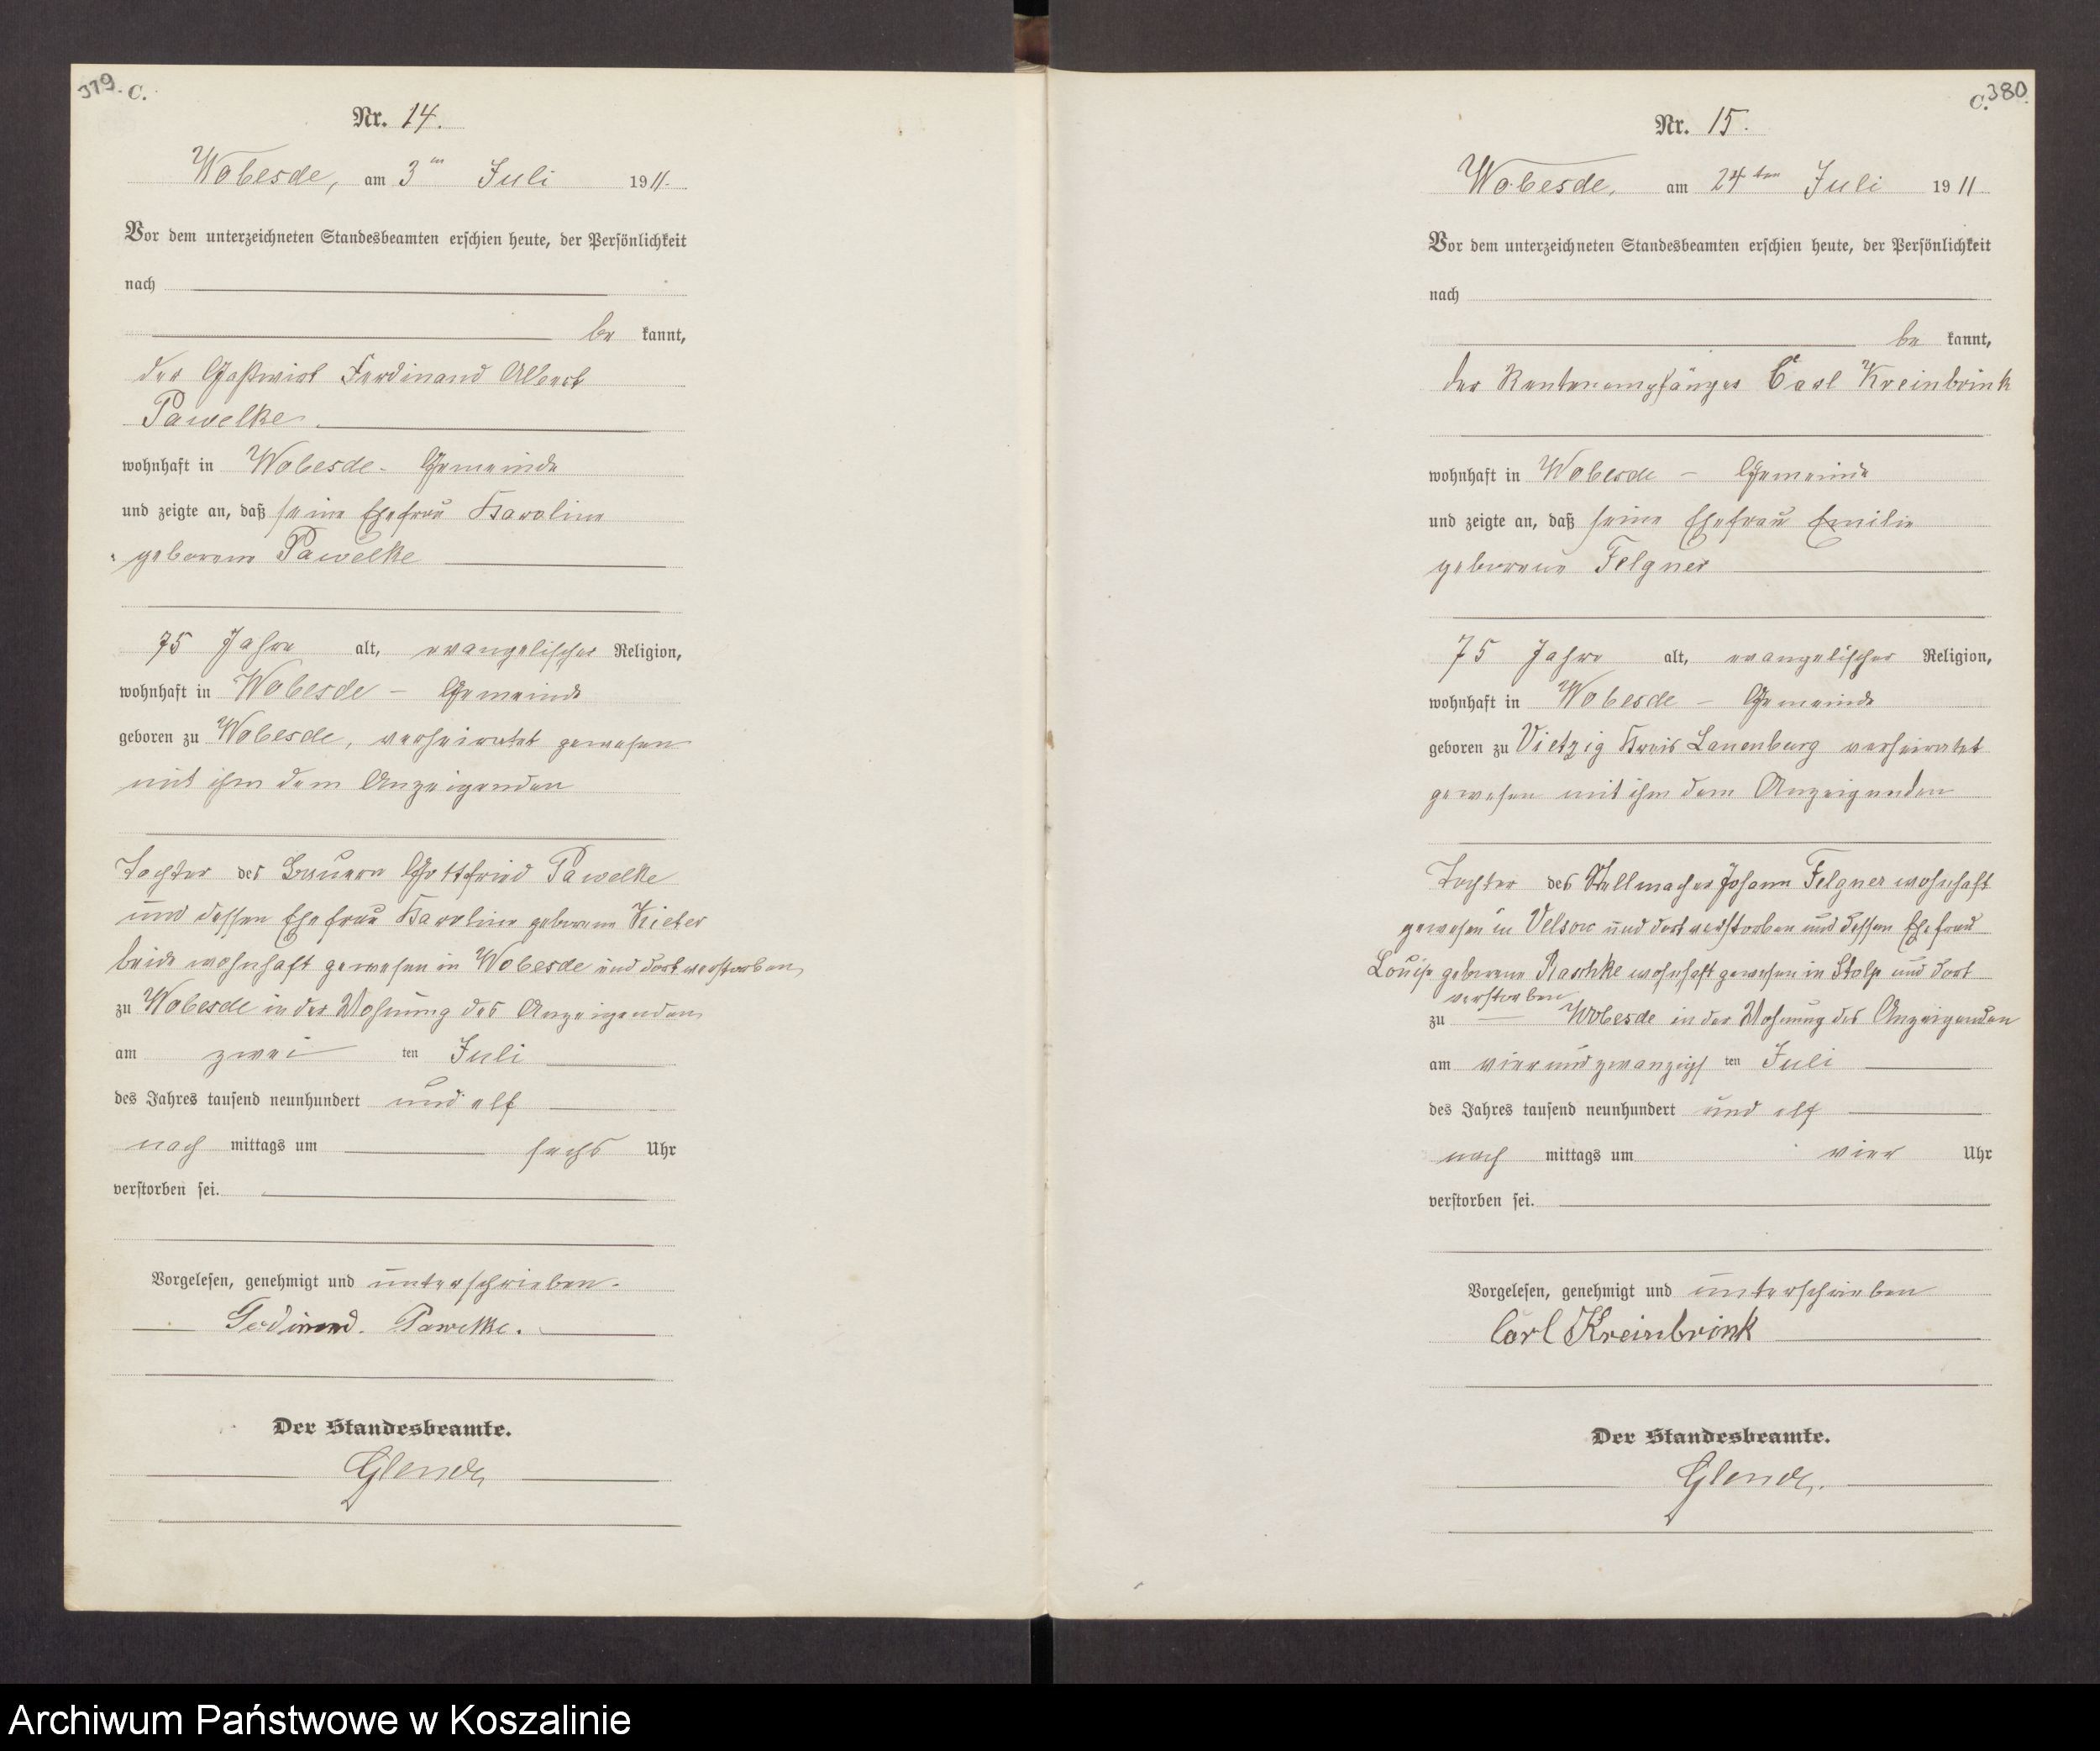 379. C.
Nr. 14.
Wobesde, am 3ten Juli 1911.
Vor dem unterzeichneten Standesbeamten erschien heute, der Persönlichkeit
nach
be kannt,
der Gastwirt Ferdinand Albert
Pawelke
wohnhaft in Wobesde - Gemeinde
und zeigte an, daß seine Ehefrau Karoline
geborene Pawelke
75 Jahre alt, evangelischer Religion,
wohnhaft in Wobesde - Gemeinde
geboren zu Wobesde, verheiratet gewesen
mit ihm dem Anzeigenden
Tochter des Bauern Gottfried Pawelke
und dessen Ehefrau Karoline geborene
beide wohnhaft gewesen in Wobesde und dort verstorben,
zu Wobesde in der Wohnung des Anzeigenden
am zwei ten Juli
des Jahres tausend neunhundert und elf
nach mittags um sechs Uhr
verstorben sei.
Vorgelesen, genehmigt und unterschrieben.
Ferdinand. Pawelke.
Der Standesbeamte.
C. 380.
Nr. 15.
Wobesde, am 24ten Juli 1911
Vor dem unterzeichneten Standesbeamten erschien heute, der Persönlichkeit
nach
be kannt,
der Rentenempfänger Carl Kreinbrink
wohnhaft in Wobesde - Gemeinde
und zeigte an, daß seine Ehefrau Emilie
geborene Felgner
75 Jahre alt, evangelischer Religion,
wohnhaft in Wobesde - Gemeinde
geboren zu Vietzig Kreis Lauenburg verheiratet
gewesen mit ihm dem Anzeigenden
Tochter des Stellmacher Johann Felgner wohnhaft
gewesen in Velsow und dort verstorben und dessen Ehefrau
Louise geborene Raschke wohnhaft gewesen in Stolp und dort
verstorben
zu Wobesde in der Wohnung des Anzeigenden
am vierundzwanzigs ten Juli
des Jahres tausend neunhundert und elf
nach mittags um vier Uhr
verstorben sei.
Vorgelesen, genehmigt und unterschrieben
Carl Kreinbrink
Der Standesbeamte.
Archiwum Państwowe w Koszalinie